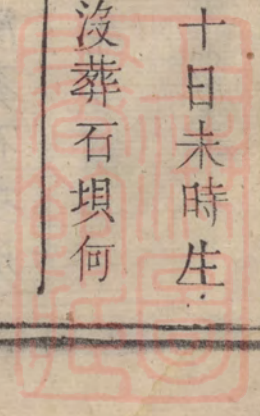 十日未時生
没葬石垻何